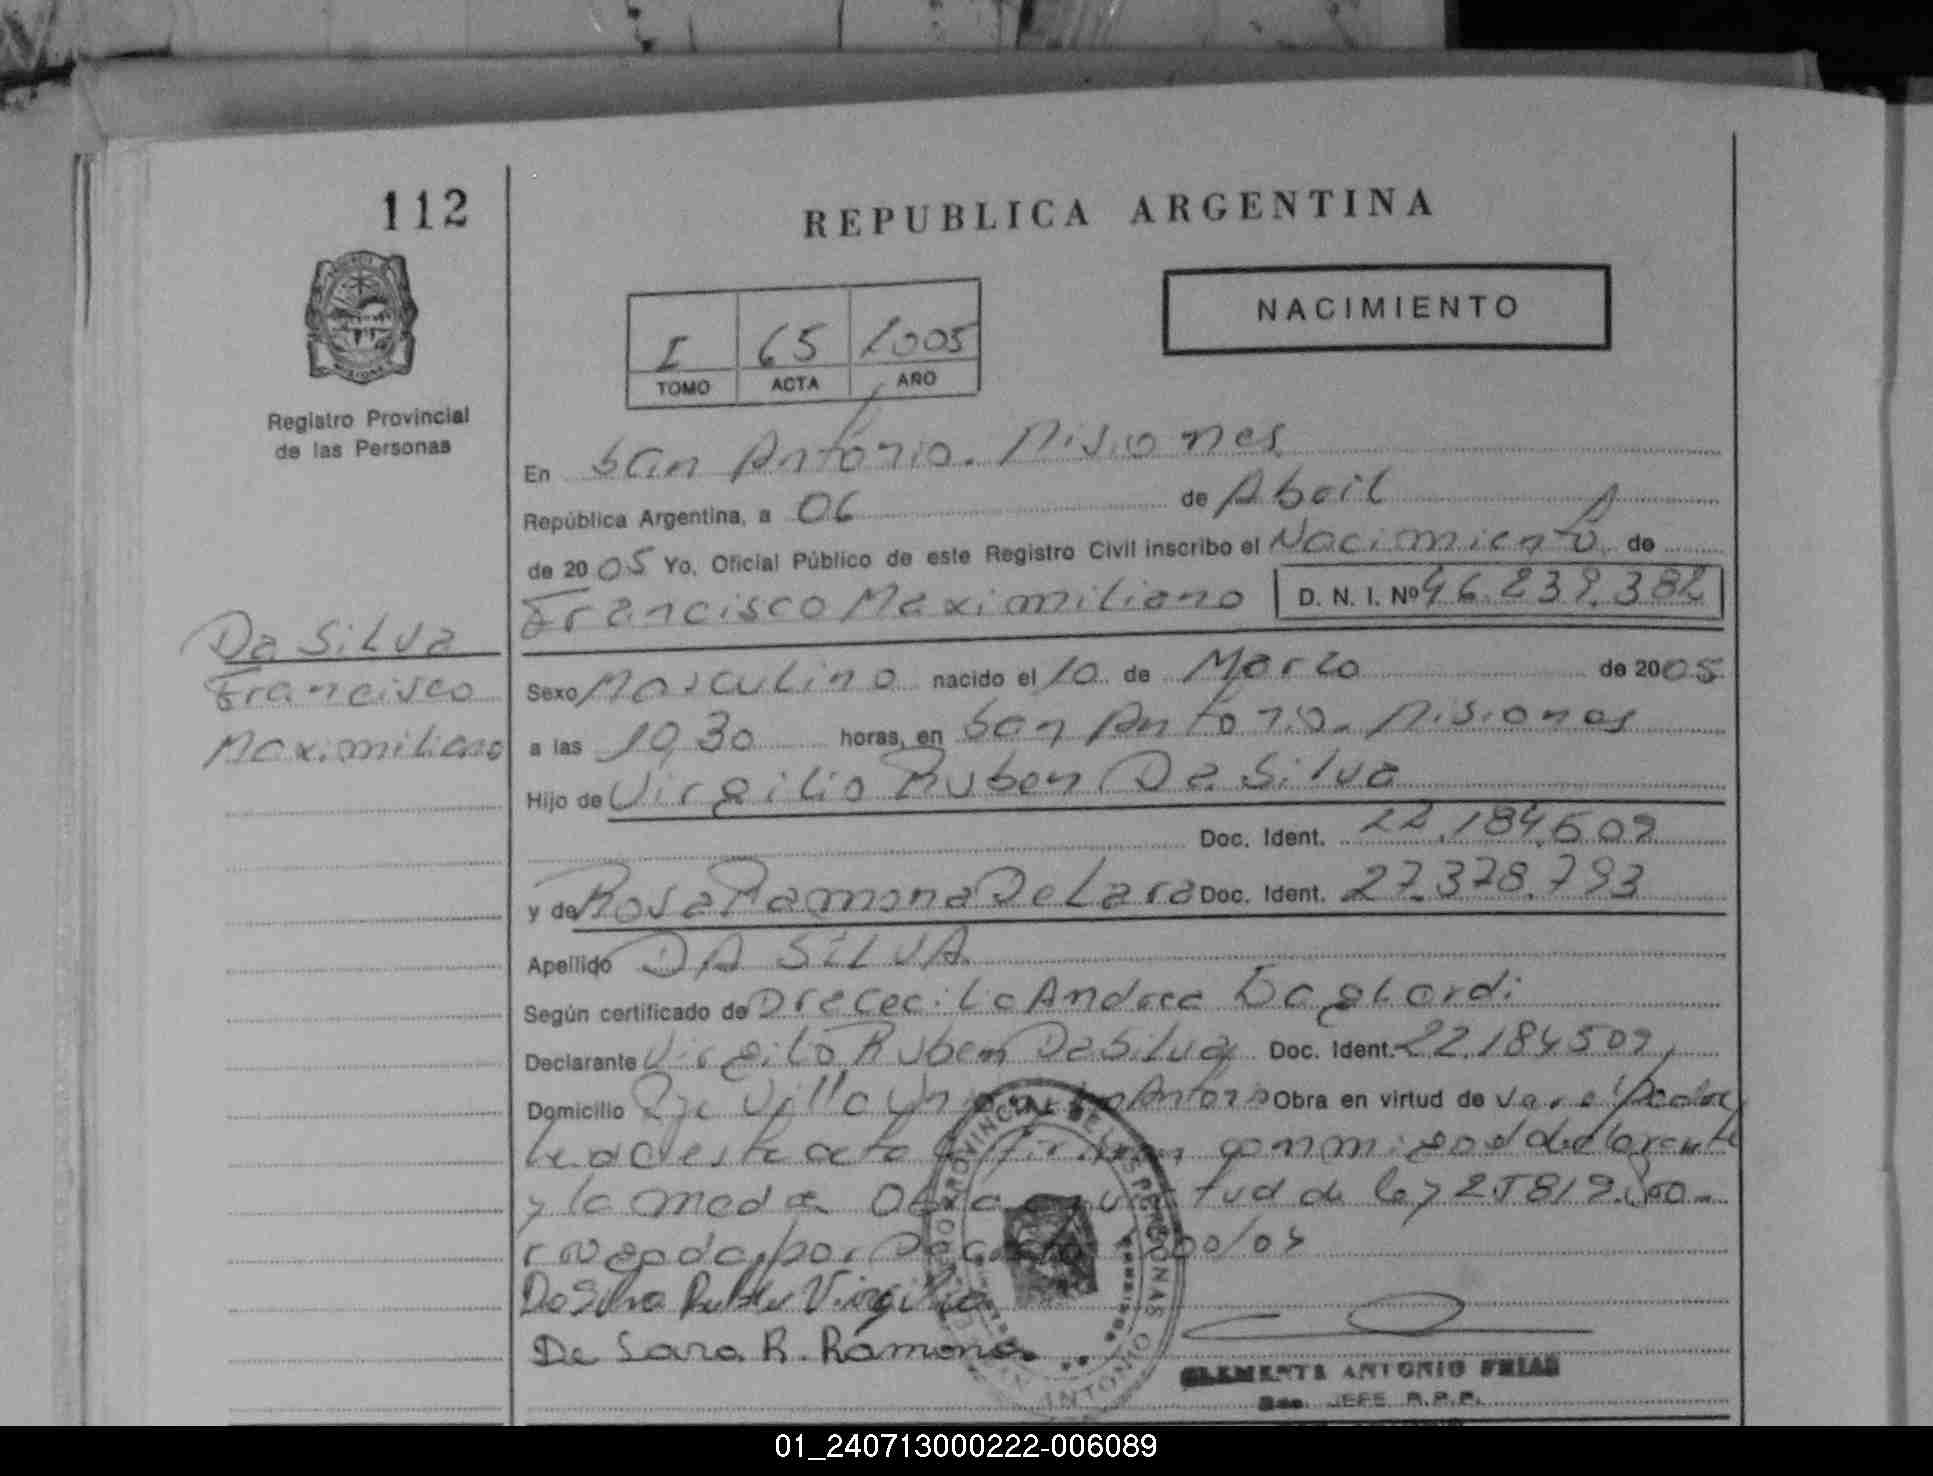 112
REPUBLICA ARGENTINA
NACIMIENTO
I 65 2005
TOMO ACTA AÑO
Registro Provincial
de las Personas
En San Antonio. Misiones
República Argentina, a 06 de Abril
de 2005 Yo, Oficial Público de este Registro Civil inscribo el Nacimiento de
Francisco Maximiliano D. N. I. Nº 46.239.382
Da Silva
Francisco
Maximiliano
Sexo Masculino nacido el 10 de Marzo de 2005
a las 10,30 horas, en San Antonio. Misiones
Hijo de Virgilio Ruben Da Silva
Doc. Ident. 22.184.509
y de Rosa Ramona De Lara Doc. Ident. 27.378.793
Apellido DA SILVA
Según certificado de Dra Cecilia Andrea
Declarante Virgilio Ruben Da Silva Doc. Ident. 22.184509
Domicilio Pje Villa San Antonio Obra en virtud de
Leida esta acta la firman conmigo el declarante
y la madre Obra en virtud de ley 25819.
por Decreto /04
Da Silva Ruben Virgilio
De Lara R. Ramona
REGISTRO PROVINCIAL DE LAS PERSONAS
SAN ANTONIO
CLEMENTE ANTONIO FRIAS
JEFE R.P.P.
01_240713000222-006089